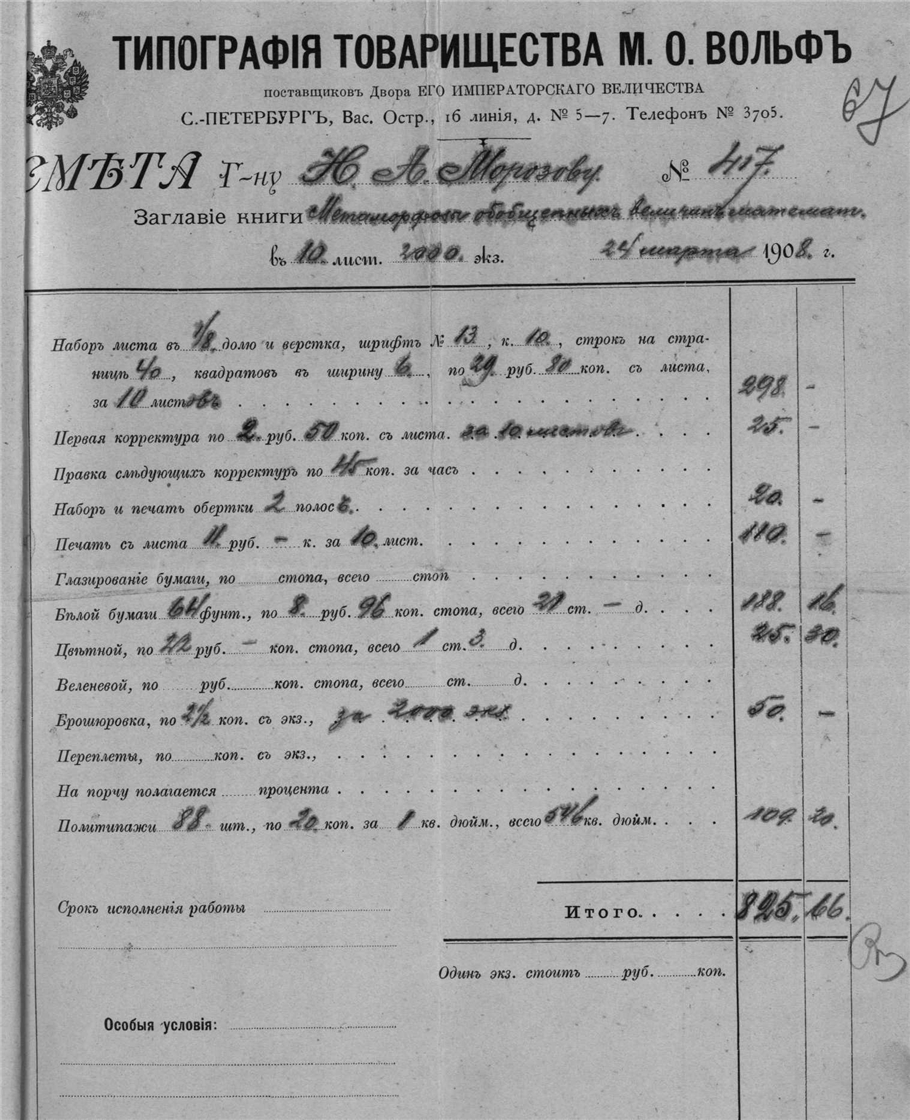 ТИПОГРАФІЯ ТОВАРИЩЕСТВА М. О. ВОЛЬФЪ
поставщиковъ Двора ЕГО ИМПЕРАТОРСКАГО ВЕЛИЧЕСТВА
С.-ПЕТЕРБУРГЪ, Вас. Остр., 16 линія, д. № 5—7. Телефонъ № 3705.
67
СМѢТА Г-ну Н. А. Морозову. № 417.
Заглавіе книги Метаморфозы обобщенныхъ величинъ математ.
въ 10. лист. 2000. экз. 24 марта 1908. г.
Наборъ листа въ 1/8 долю и верстка, шрифтъ № 13, к. 10, строкъ на стра-
ницѣ 40, квадратовъ въ ширину 6., по 29 руб. 80 коп. съ листа,
за 10 листовъ . . . . 298. -
Первая корректура по 2. руб. 50 коп. съ листа. за 10 листовъ . . . 25. -
Правка слѣдующихъ корректуръ по 45 коп. за часъ . . . .
Наборъ и печать обертки 2 полосъ. . . . 20. -
Печать съ листа 11. руб. - к. за 10. лист. . . . 110. -
Глазированіе бумаги, по ...... стопа, всего ...... стоп . . . .
Бѣлой бумаги 64 фунт., по 8. руб. 96 коп. стопа, всего 21 ст. — д. . . . 188. 16.
Цвѣтной, по 22 руб. — коп. стопа, всего 1 ст. 3. д. . . . 25. 30.
Веленевой, по ...... руб. ...... коп. стопа, всего ...... ст. ...... д. . . .
Брошюровка, по 2½ коп. съ экз., за 2000 экз. . . . 50. —
Переплеты, по ...... коп. съ экз., . . . .
На порчу полагается ...... процента . . . .
Политипажи 88. шт., по 20. коп. за 1 кв. дюйм., всего 546 кв. дюйм. . . . 109. 20.
Срокъ исполненія работы
Итого. . . . . 825. 66.
Одинъ экз. стоитъ ...... руб. ...... коп.
Особыя условія: